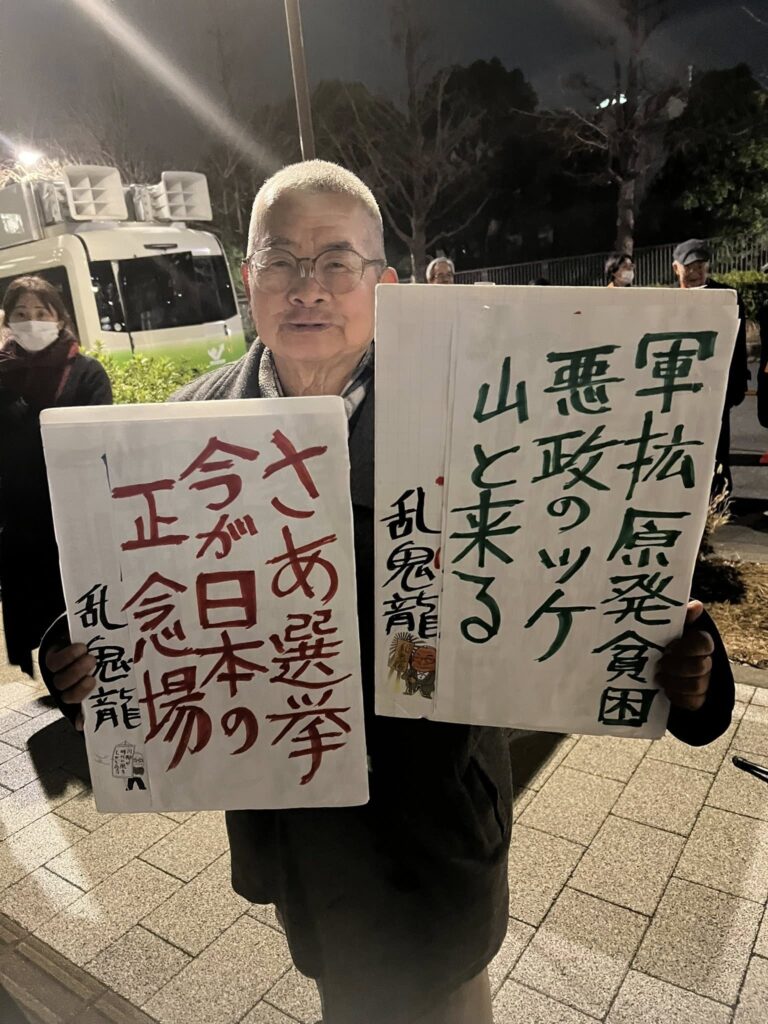 さあ選挙
今が日本の
正念場
乱鬼龍
軍拡原発貧困
悪政のツケ
山と来る
乱鬼龍